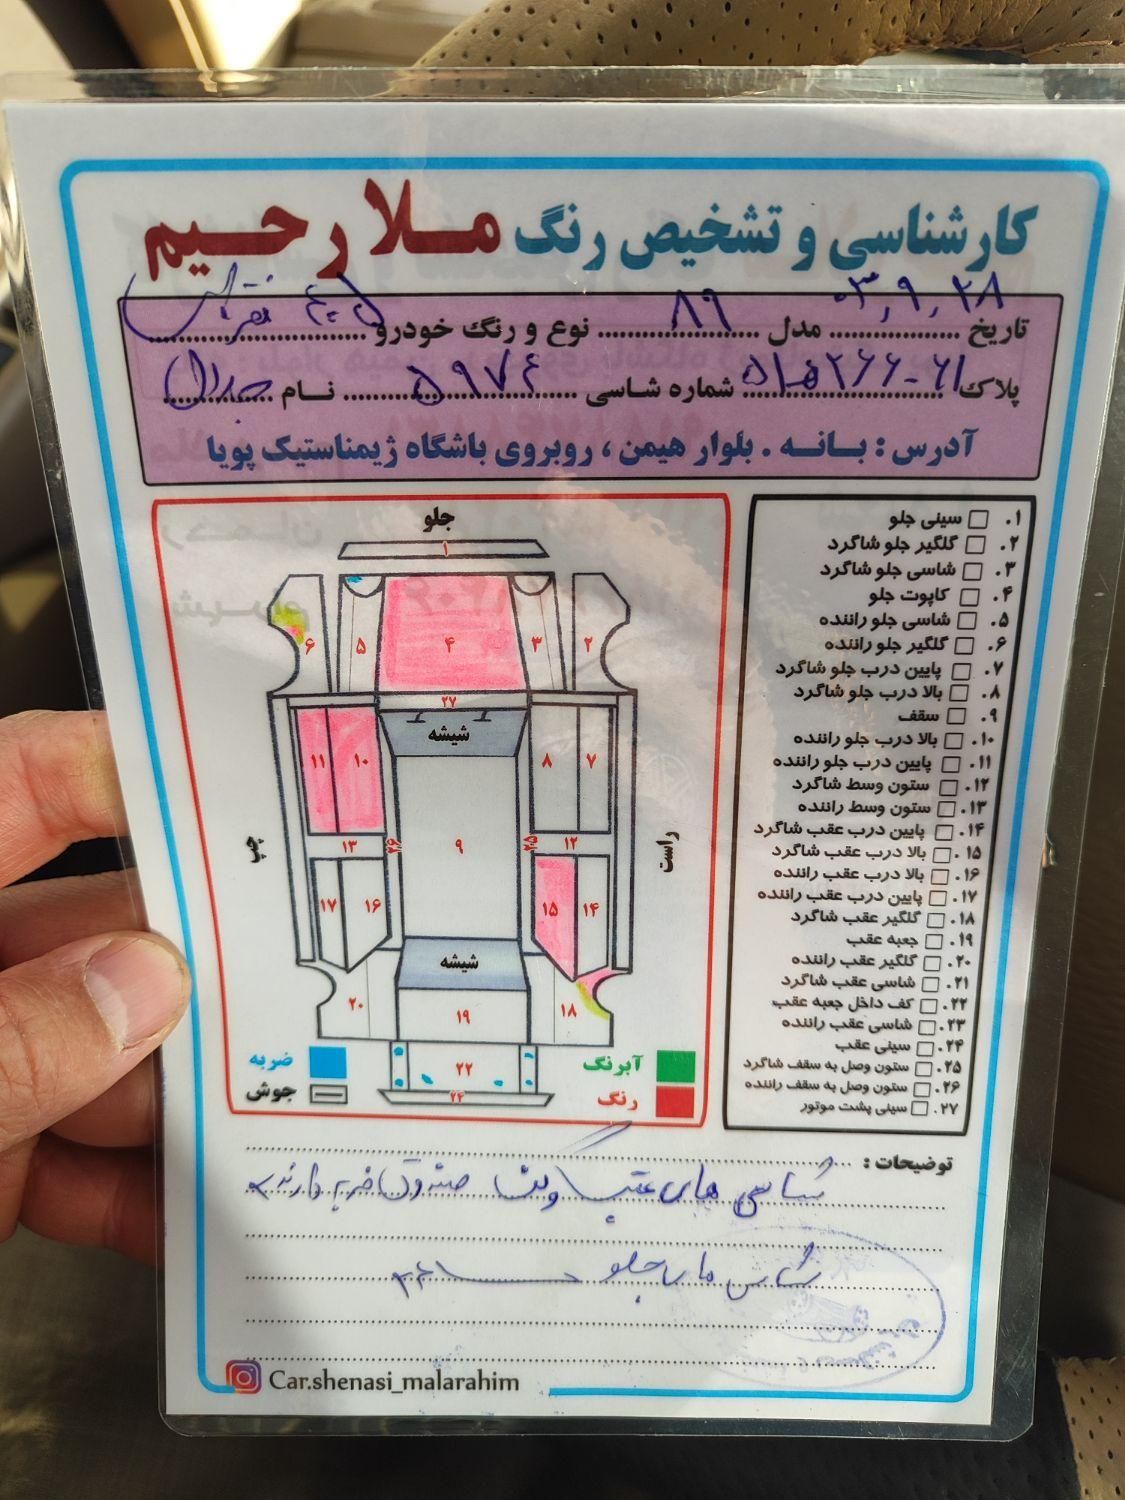 کارشناسی و تشخیص رنگ ملا رحیم
تاریخ ۰۳,۹,۲۸ مدل ۸۹ نوع و رنگ خودرو
پلاک شماره شاسی ۵۹۷۴ نام جلال
آدرس : بانه . بلوار هیمن ، روبروی باشگاه ژیمناستیک پویا
جلو
۱
۶ ۵ ۴ ۳ ۲
۲۷
شیشه
۱۱ ۱۰ ۸ ۷
چپ
راست
۱۳ ۲۶ ۹ ۲۵ ۱۲
۱۷ ۱۶ ۱۵ ۱۴
شیشه
۲۰ ۱۹ ۱۸
۲۲
۲۴
ضربه
جوش
آبرنگ
رنگ
۱. سینی جلو
۲. گلگیر جلو شاگرد
۳. شاسی جلو شاگرد
۴. کاپوت جلو
۵. شاسی جلو راننده
۶. گلگیر جلو راننده
۷. پایین درب جلو شاگرد
۸. بالا درب جلو شاگرد
۹. سقف
۱۰. بالا درب جلو راننده
۱۱. پایین درب جلو راننده
۱۲. ستون وسط شاگرد
۱۳. ستون وسط راننده
۱۴. پایین درب عقب شاگرد
۱۵. بالا درب عقب شاگرد
۱۶. بالا درب عقب راننده
۱۷. پایین درب عقب راننده
۱۸. گلگیر عقب شاگرد
۱۹. جعبه عقب
۲۰. گلگیر عقب راننده
۲۱. شاسی عقب شاگرد
۲۲. کف داخل جعبه عقب
۲۳. شاسی عقب راننده
۲۴. سینی عقب
۲۵. ستون وصل به سقف شاگرد
۲۶. ستون وصل به سقف راننده
۲۷. سینی پشت موتور
توضیحات :
شاسی های عقب و کف صندوق ضربه دارند
شاسی های جلو سالم
Car.shenasi_malarahim